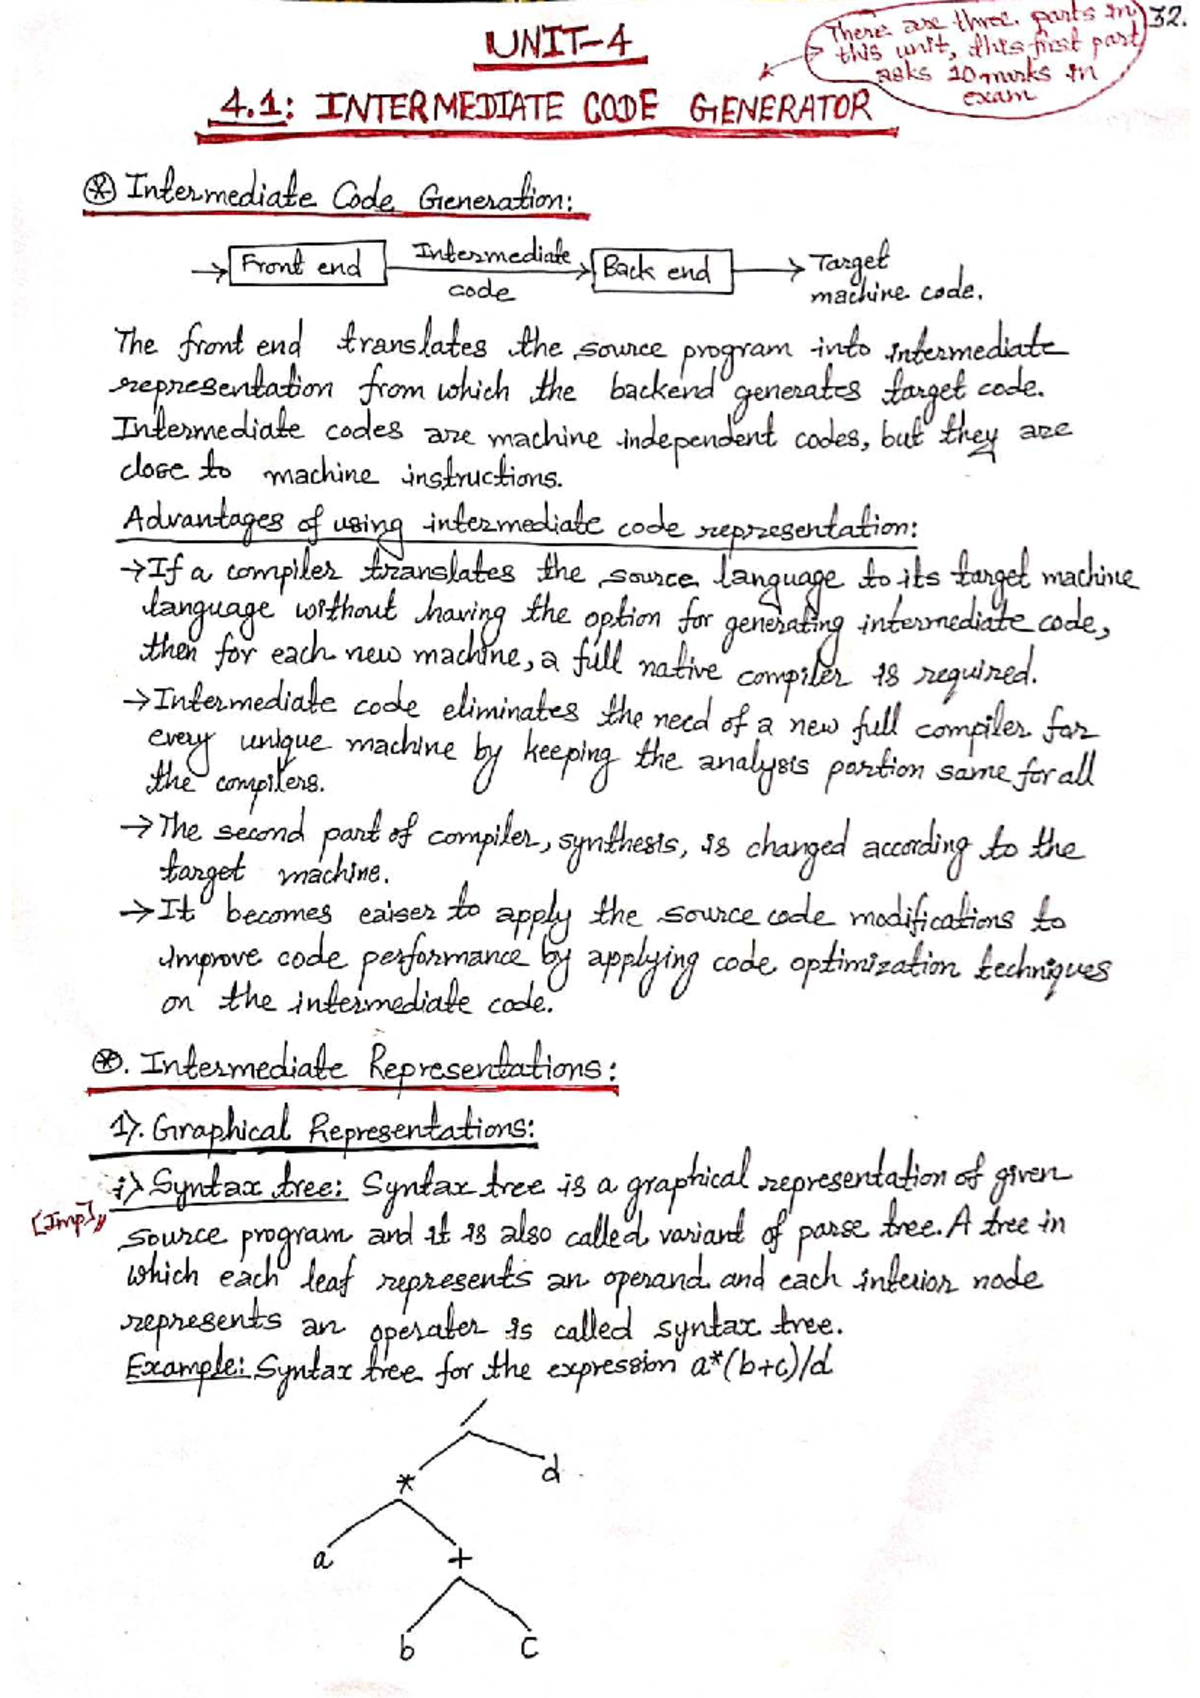 There are three parts in
this unit, this first part
asks 10 marks in
exam
32.
UNIT-4
4.1: INTERMEDIATE CODE GENERATOR
⊛ Intermediate Code Generation:
Front end
Intermediate
code
Back end
Target
machine code.
The front end translates the source program into intermediate
representation from which the backend generates target code.
Intermediate codes are machine independent codes, but they are
close to machine instructions.
Advantages of using intermediate code representation:
→If a compiler translates the source language to its target machine
language without having the option for generating intermediate code,
then for each new machine, a full native compiler is required.
→Intermediate code eliminates the need of a new full compiler for
every unique machine by keeping the analysis portion same for all
the compilers.
→The second part of compiler, synthesis, is changed according to the
target machine.
→It becomes eaiser to apply the source code modifications to
improve code performance by applying code optimization techniques
on the intermediate code.
⊛. Intermediate Representations:
1). Graphical Representations:
i) Syntax tree: Syntax tree is a graphical representation of given
[Imp]
source program and it is also called variant of parse tree. A tree in
which each leaf represents an operand and each interior node
represents an operater is called syntax tree.
Example: Syntax tree for the expression a*(b+c)/d
/
* d
a +
b c